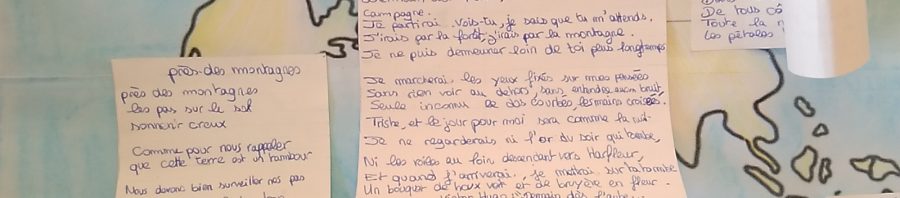 près des montagnes
près des montagnes
les pas sur le sol
sonnent creux
Comme pour nous rappeler
que cette terre est un tambour
Nous devons bien surveiller nos pas
campagne.
Je partirai. Vois-tu, je sais que tu m'attends.
J'irais par la forêt, j'irais par la montagne.
Je ne puis demeurer loin de toi plus longtemps
Je marcherai les yeux fixés sur mes pensées
Sans rien voir au dehors, sans entendre aucun bruit,
Seule inconnu le dos courbée, les mains croisées.
Triste, et le jour pour moi sera comme la nuit.
Je ne regarderais ni l'or du soir qui tombe,
Ni les voiles au loin descendant vers Harfleur,
Et quand j'arriverai, je mettrai sur ta tombe
Un bouquet de houx vert et de bruyère en fleur.
Victor Hugo, Demain dès l'aube
De tous cô
Toute la n
Les pétales